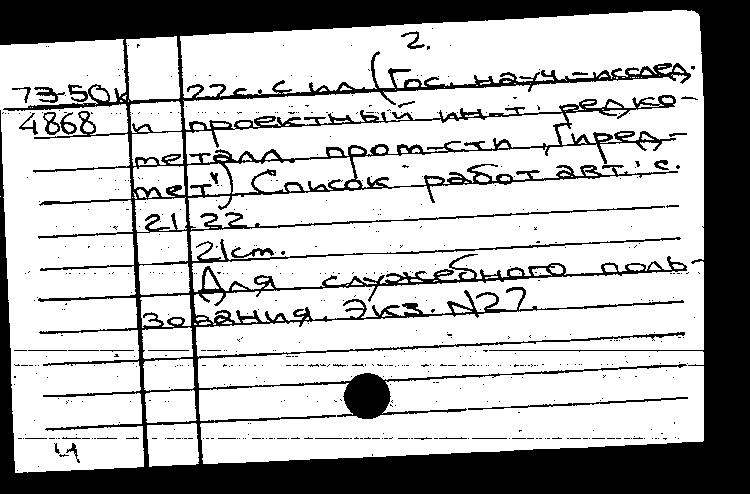 2.
73-50к 22 с. с ил. (Гос. науч.-исслед.
4868 и проектный ин-т редко-
металл. пром-сти "Гиред-
мет") Список работ авт.: с.
21-22.
21 см.
Для служебного поль-
зования. Экз. N27.
ч